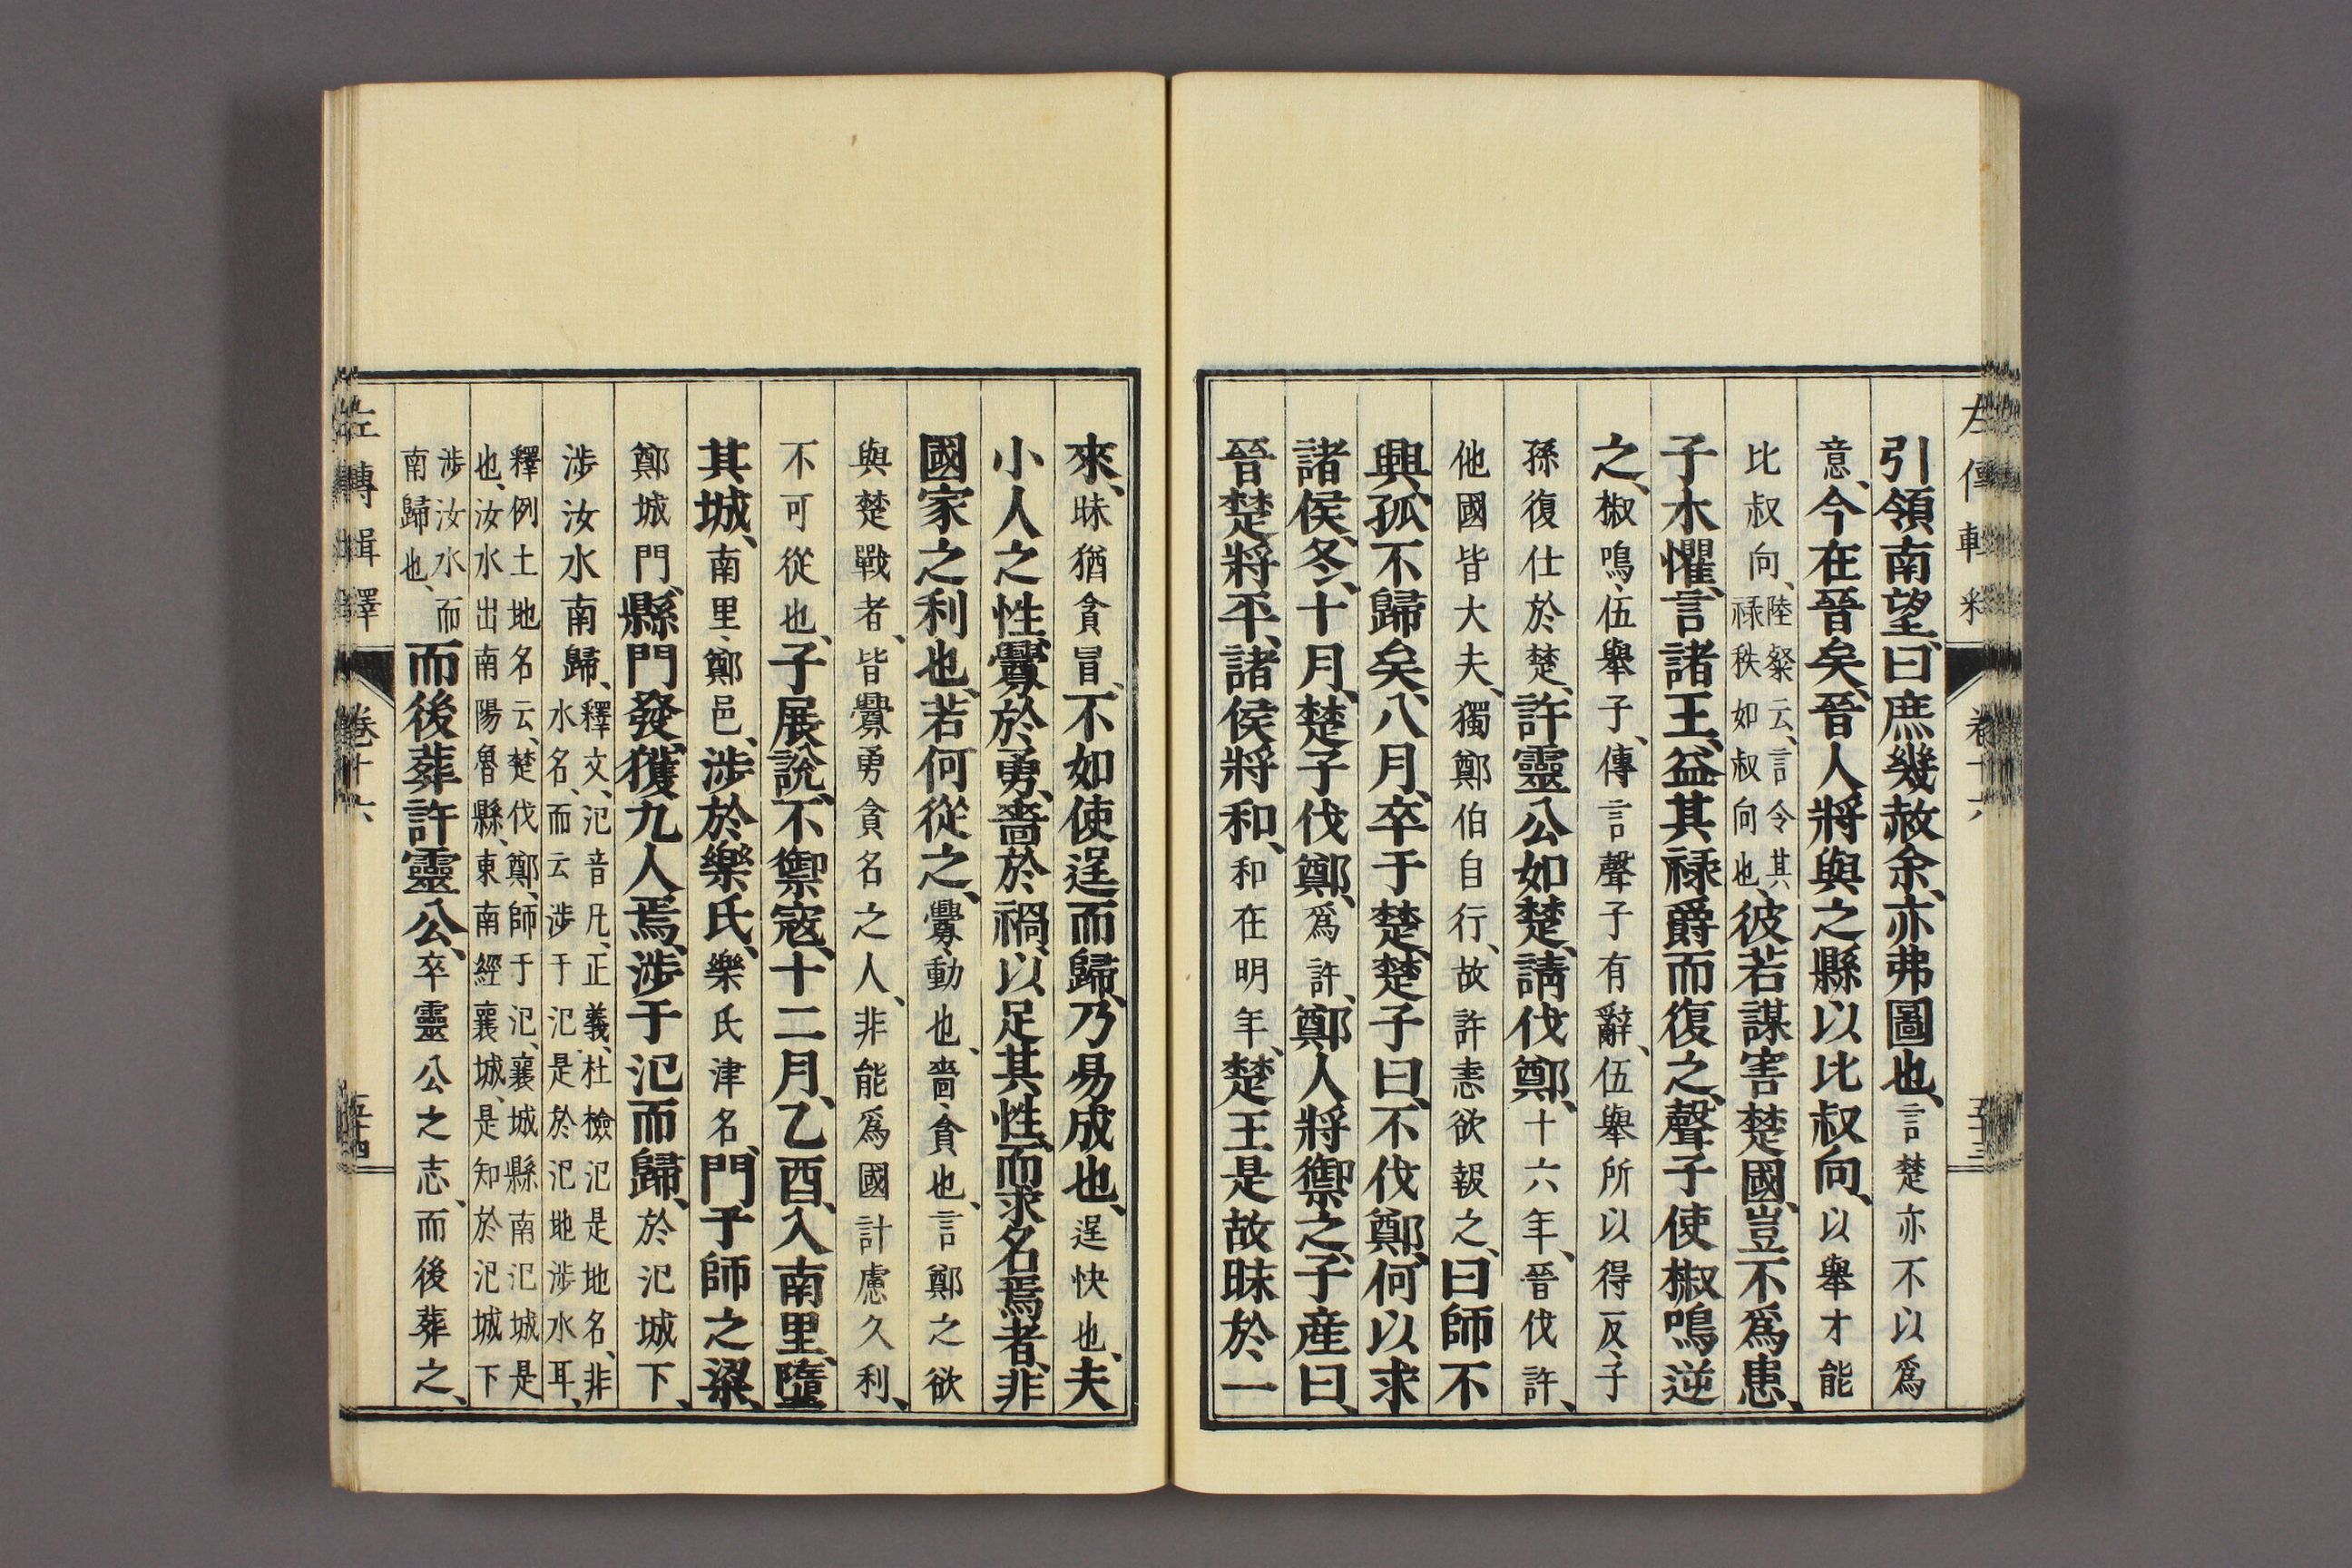 引領南望、曰庶幾赦余、亦弗圖也、言楚亦不以爲
意、今在晉矣、晉人將與之縣、以比叔向、以舉才能
比叔向、陸粲云、言令其祿秩如叔向也、彼若謀害楚國、豈不爲患、
子木懼、言諸王、益其祿爵而復之、聲子使椒鳴逆
之、椒鳴、伍舉子、傳言聲子有辭、伍舉所以得反、子
孫復仕於楚、許靈公如楚、請伐鄭、十六年、晉伐許、
他國皆大夫、獨鄭伯自行、故許恚欲報之、曰師不
興、孤不歸矣、八月、卒于楚、楚子曰、不伐鄭、何以求
諸侯、冬、十月、楚子伐鄭、爲許、鄭人將禦之、子産曰、
晉楚將平、諸侯將和、和在明年、楚王是故昧於一
來、昧猶貪冒、不如使逞而歸、乃易成也、逞快也、夫
小人之性、釁於勇、嗇於禍、以足其性、而求名焉者、非
國家之利也、若何從之、釁、動也、嗇、貪也、言鄭之欲
與楚戰者、皆釁勇貪名之人、非能爲國計慮久利、
不可從也、子展說、不禦寇、十二月、乙酉、入南里、墮
其城、南里、鄭邑、涉於樂氏、樂氏津名、門于師之梁、
鄭城門、縣門發、獲九人焉、涉于氾而歸、於氾城下、
涉汝水南歸、釋文、氾音凡、正義、杜檢氾是地名、非水名、而云涉于氾、是於氾地涉水耳、
釋例土地名云、楚伐鄭、師于氾、襄城縣南氾城是也、汝水出南陽魯縣、東南經襄城、是知於氾城下
涉汝水而南歸也、而後葬許靈公、卒靈公之志、而後葬之、
左傳輯釋
卷十六
五十四